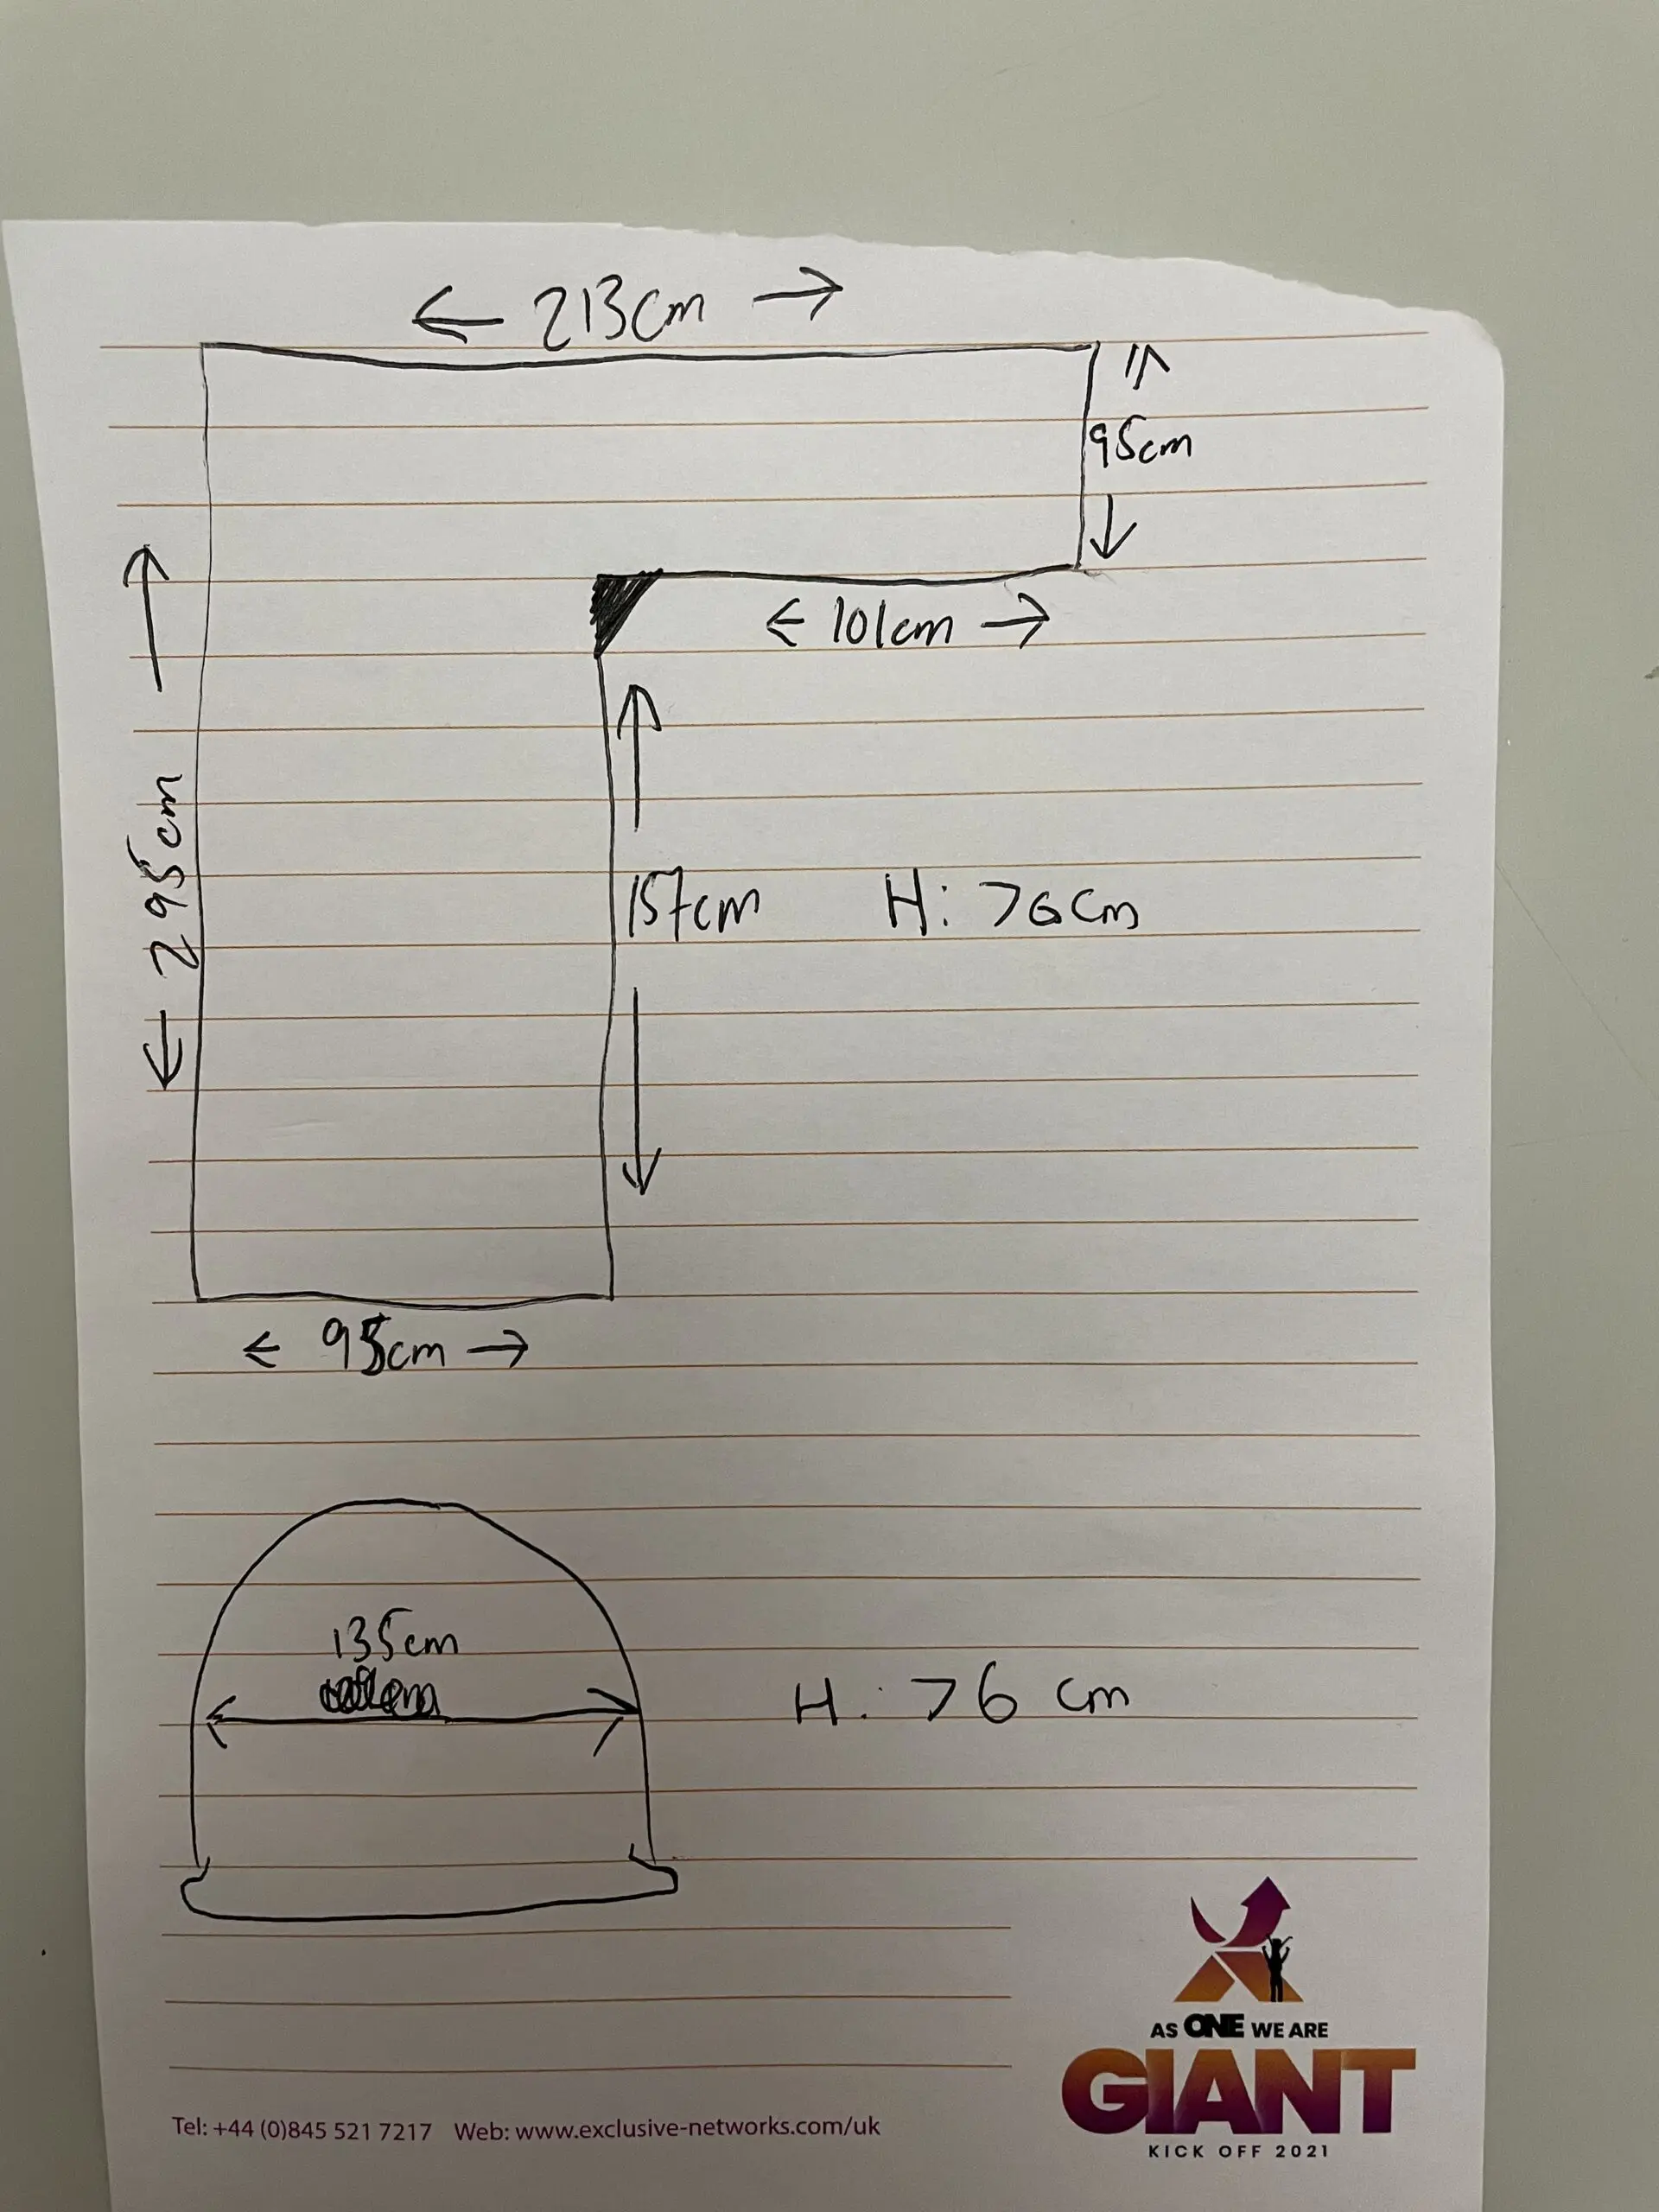 213cm
95cm
101cm
295cm
157cm
H: 76cm
95cm
135cm
H: 76 cm
AS ONE WE ARE
GIANT
KICK OFF 2021
Tel: +44 (0)845 521 7217 Web: www.exclusive-networks.com/uk